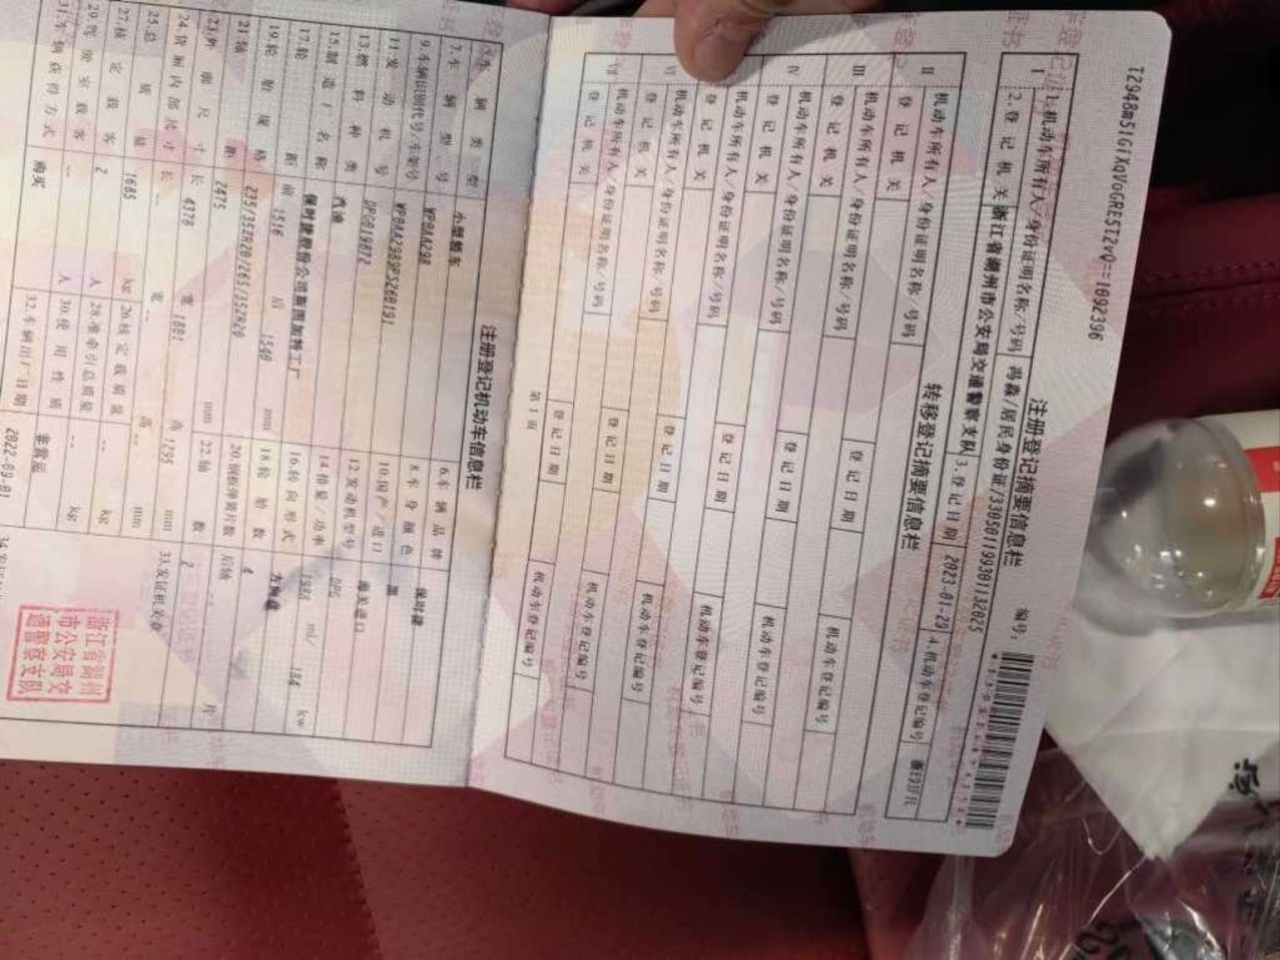 TZ948m51GiXqVoGRE5T2vQ==1092396
注册登记摘要信息栏
编号:
I
1.机动车所有人/身份证明名称/号码 冯淼/居民身份证/330501199301132025
2.登记机关 浙江省湖州市公安局交通警察支队 3.登记日期 2023-01-29 4.机动车登记编号
转移登记摘要信息栏
II 机动车所有人/身份证明名称/号码
登记机关 登记日期 机动车登记编号
III 机动车所有人/身份证明名称/号码
登记机关 登记日期 机动车登记编号
IV 机动车所有人/身份证明名称/号码
登记机关 登记日期 机动车登记编号
机动车所有人/身份证明名称/号码
登记机关 登记日期 机动车登记编号
VI 机动车所有人/身份证明名称/号码
登记机关 登记日期 机动车登记编号
VII 机动车所有人/身份证明名称/号码
登记机关 登记日期 机动车登记编号
第1页
注册登记机动车信息栏
5.车辆类型 小型轿车 6.车辆品牌 保时捷
7.车辆型号 WP0AA298 8.车身颜色 黑
9.车辆识别代号/车架号 10.国产/进口 海关进口
11.发动机号 DPG019872 12.发动机型号 DPG
13.燃料种类 汽油 14.排量/功率 1988 ml/ 184 kw
15.制造厂名称 保时捷股份公司斯图加特工厂 16.转向形式 方向盘
17.轮距 前 1516 后 1540 mm 18.轮胎数 4
19.轮胎规格 235/35ZR20/265/35ZR20 20.钢板弹簧片数 后轴 -- 片
21.轴距 2475 mm 22.轴数 2
23.外廓尺寸 长 4378 宽 1801 高 1295 mm 33.发证机关章
24.货厢内部尺寸 长 -- 宽 -- 高 -- mm
25.总质量 1685 kg 26.核定载质量 -- kg
27.核定载客 2 人 28.准牵引总质量 -- kg
29.驾驶室载客 -- 人 30.使用性质 非营运
31.车辆获得方式 购买 32.车辆出厂日期 2022-09-01
浙江省湖州
市公安局交
通警察支队